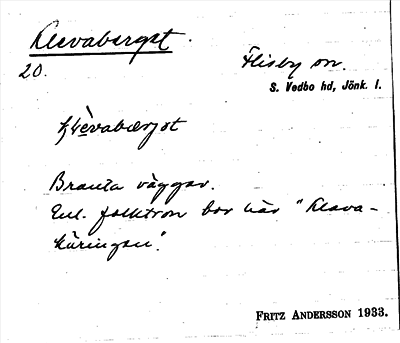 Klevaberget.
20.
Flisby sn.
S. Vedbo hd, Jönk. l.
klèvabærjət
Branta väggar.
Enl. folktron bor här "Kleva-
käringen".
FRITZ ANDERSSON 1933.